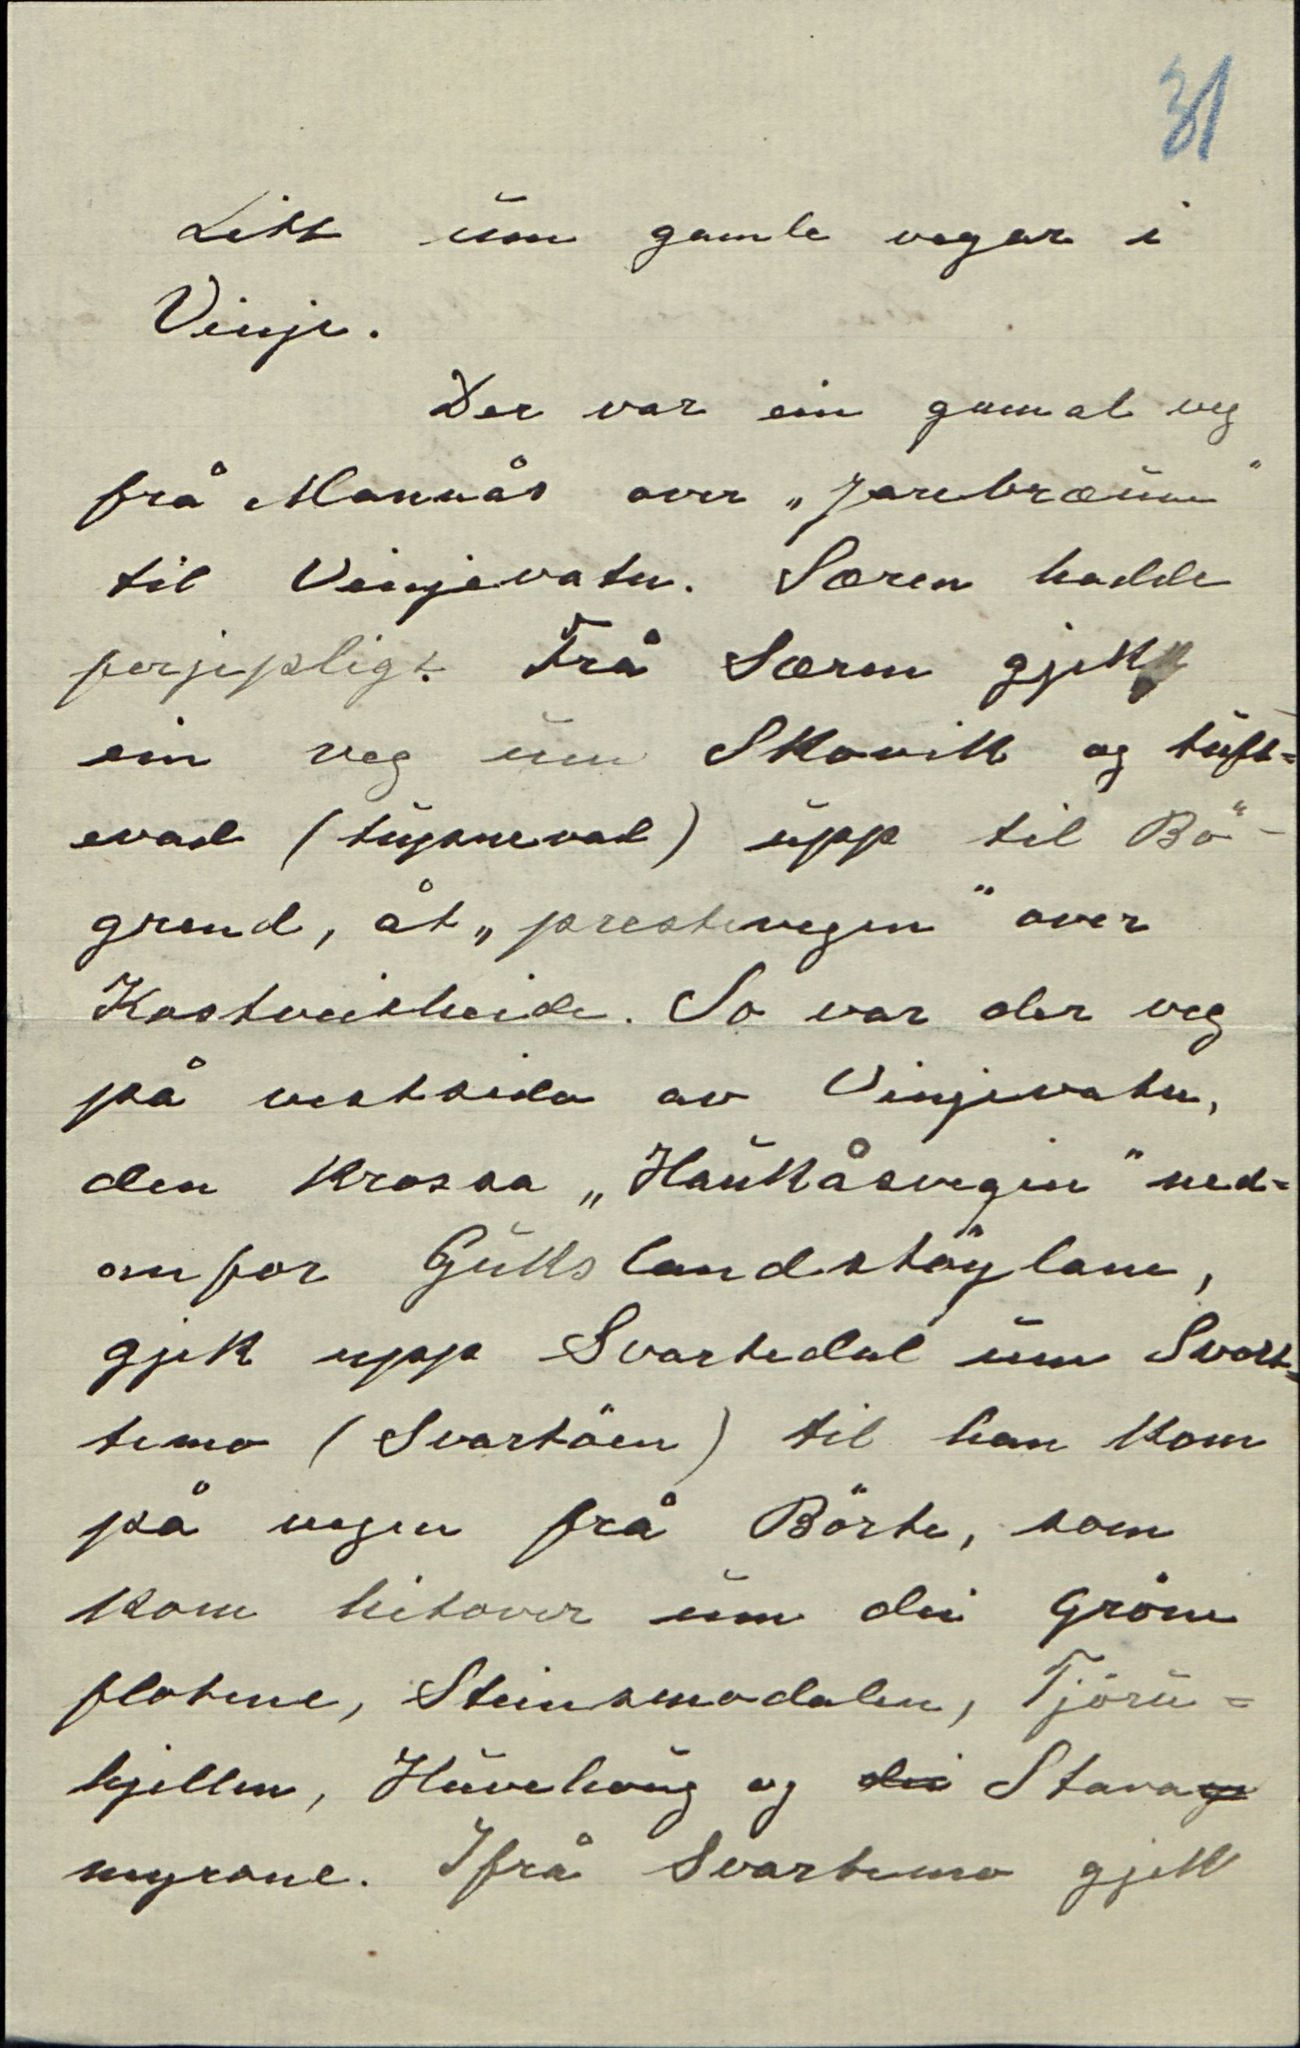 31
Litt üm gamle vegar i
Vinje.
Der var ein gamal veg
frå Mannås over
til Vinjevatn. Særen hadde
ferjepligt. Frå Særen gjekk
ein veg üm Skovik og tüft=
evad (tüysnevad) üpp til Bö-
grend, åt „prestevegen" over
Kostveitheidi. So var der veg
på vestsida av Vinjevatn,
den krossa „Haükåsvegin" ned=
anfor Gükslandstöylane,
gjek upp Svartedal üm Svart=
temo (Svartöen) til han kom
på vegen frå Börte, som
kom hitover üm dei Gröne
flotene, Steinsmodalen, Tjörü=
hjellen, Hüvehaüg og dei Stava
myrane. Ifrå Svartemo gjekk